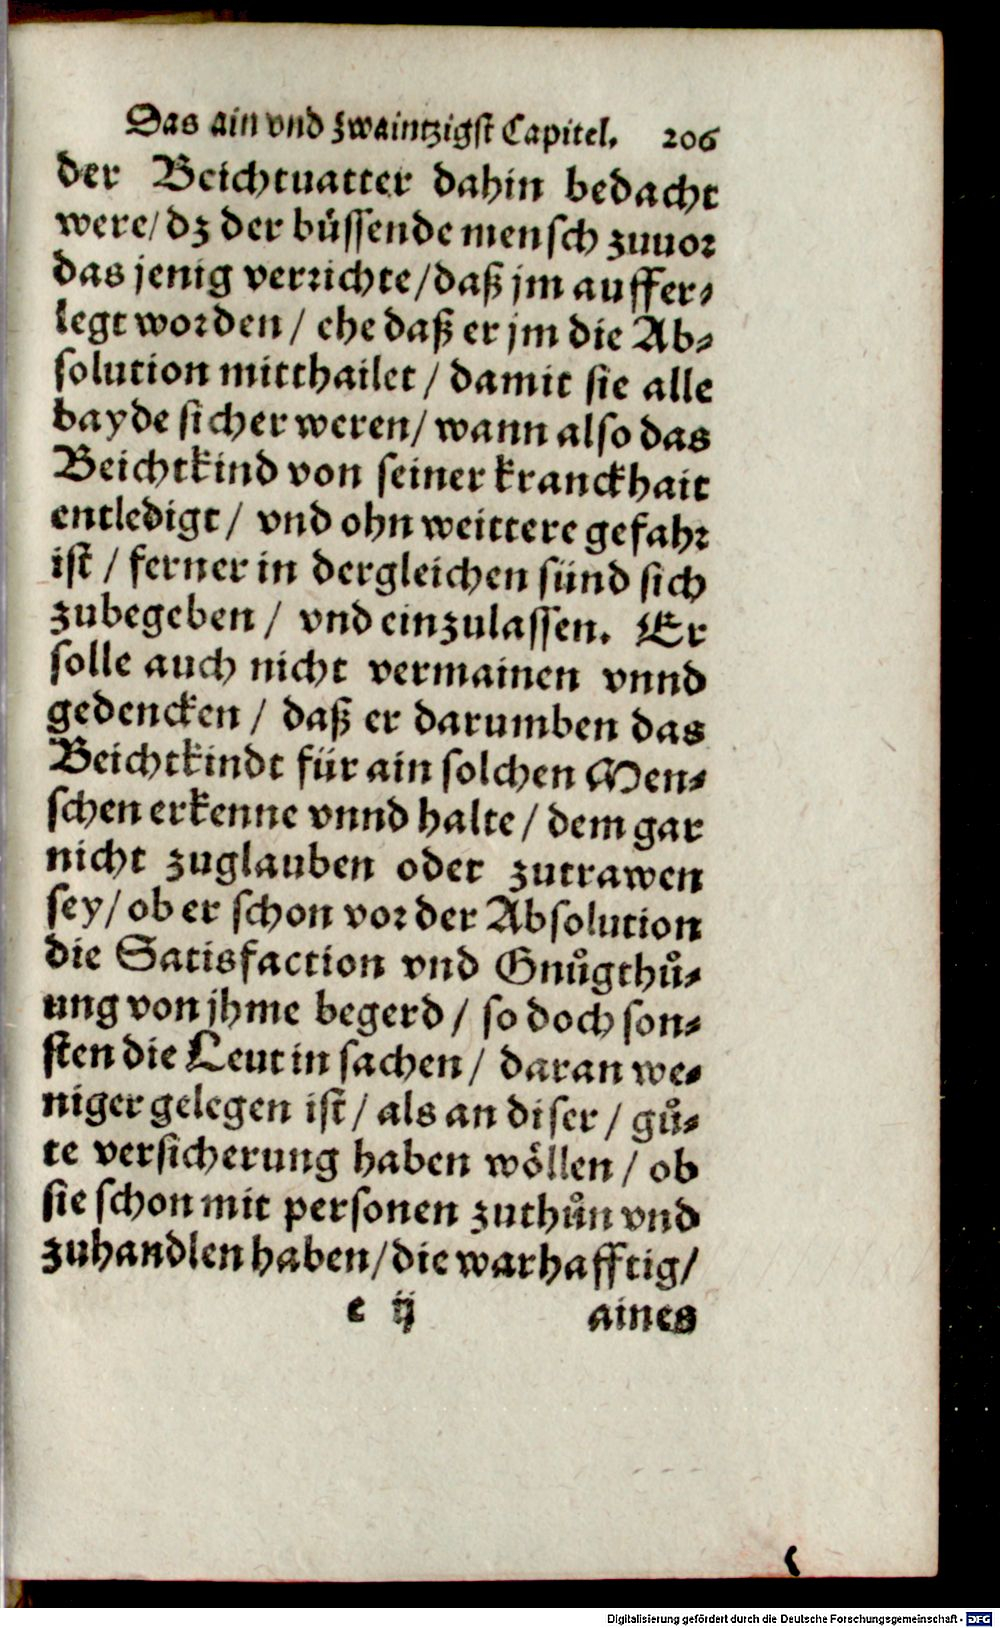 Das ain vnd zwaintzigst Capitel. 206
der Beichtuatter dahin bedacht
were/ dz der büssende mensch zuuor
das jenig verrichte/ daß jm auffer⸗
legt worden/ ehe daß er jm die Ab⸗
solution mitthailet/ damit sie alle
bayde sicher weren/ wann also das
Beichtkind von seiner kranckhait
entledigt/ vnd ohn weittere gefahr
ist/ ferner in dergleichen sünd sich
zubegeben/ vnd einzulassen. Er
solle auch nicht vermainen vnnd
gedencken/ daß er darumben das
Beichtkindt für ain solchen Men⸗
schen erkenne vnnd halte/ dem gar
nicht zuglauben oder zutrawen
sey/ ob er schon vor der Absolution
die Satisfaction vnd Gnůgthů⸗
ung von jhme begerd/ so doch son⸗
sten die Leut in sachen/ daran we⸗
niger gelegen ist/ als an diser/ gů⸗
te versicherung haben wöllen/ ob
sie schon mit personen zuthůn vnd
zuhandlen haben/ die warhafftig/
e ij aines
Digitalisierung gefördert durch die Deutsche Forschungsgemeinschaft - DFG